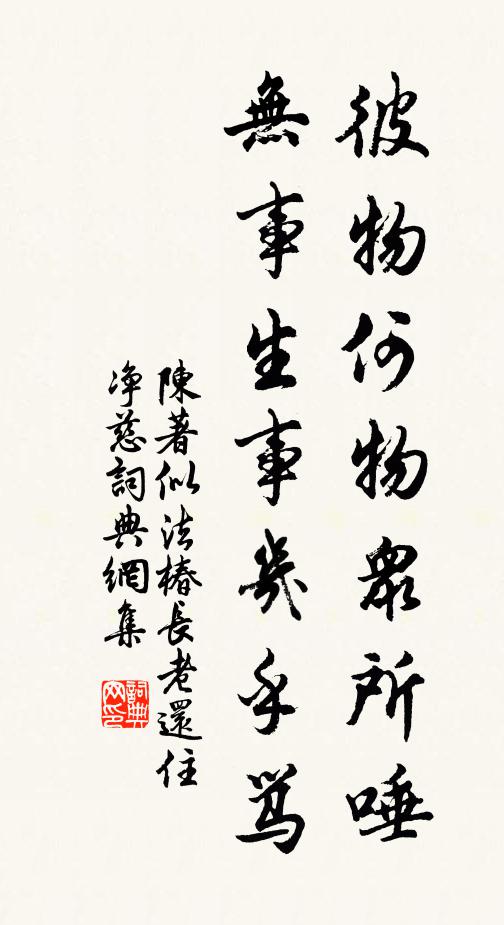 彼物何物眾所唾
無事生事幾乎罵
陳著似法椿長老還住
净慈詞典網集
詞典网印